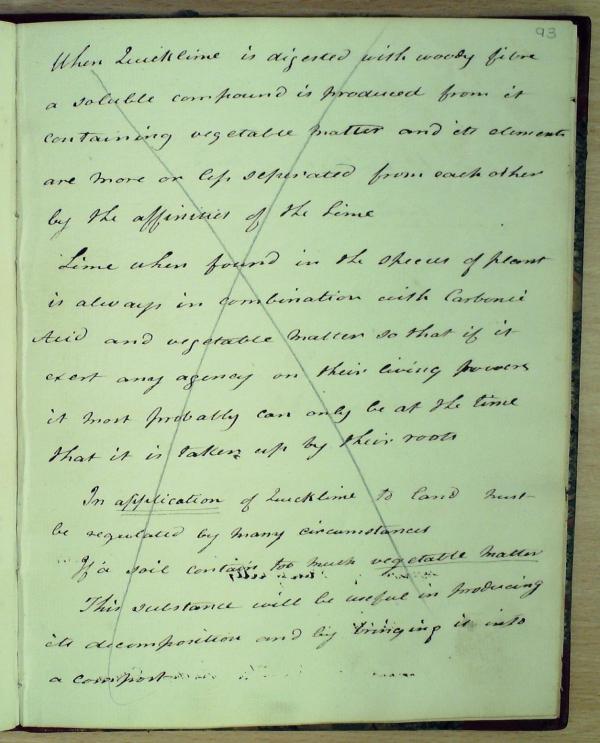 93
When Quicklime is digested with woody fibre
a soluble compound is produced from it
containing vegetable matter and its elements
are more or less seperated from each other
by the affinities of the Lime
Lime when found in the species of plant
is always in combination with Carbonic
Acid and vegetable matter so that if it
exert any agency on their living powers
it most probably can only be at the time
that it is taken up by their roots
In application of Quicklime to land must
be regulated by many circumstances
If a soil contain too much vegetable matter
This substance will be useful in producing
its decomposition and by bringing it into
a compost